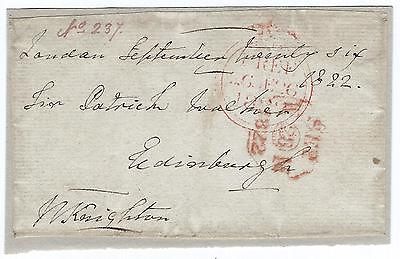 No 237.
London September twenty six
1822.
Sir Patrick Walker
Edinburgh
W Knighton
FREE
1822